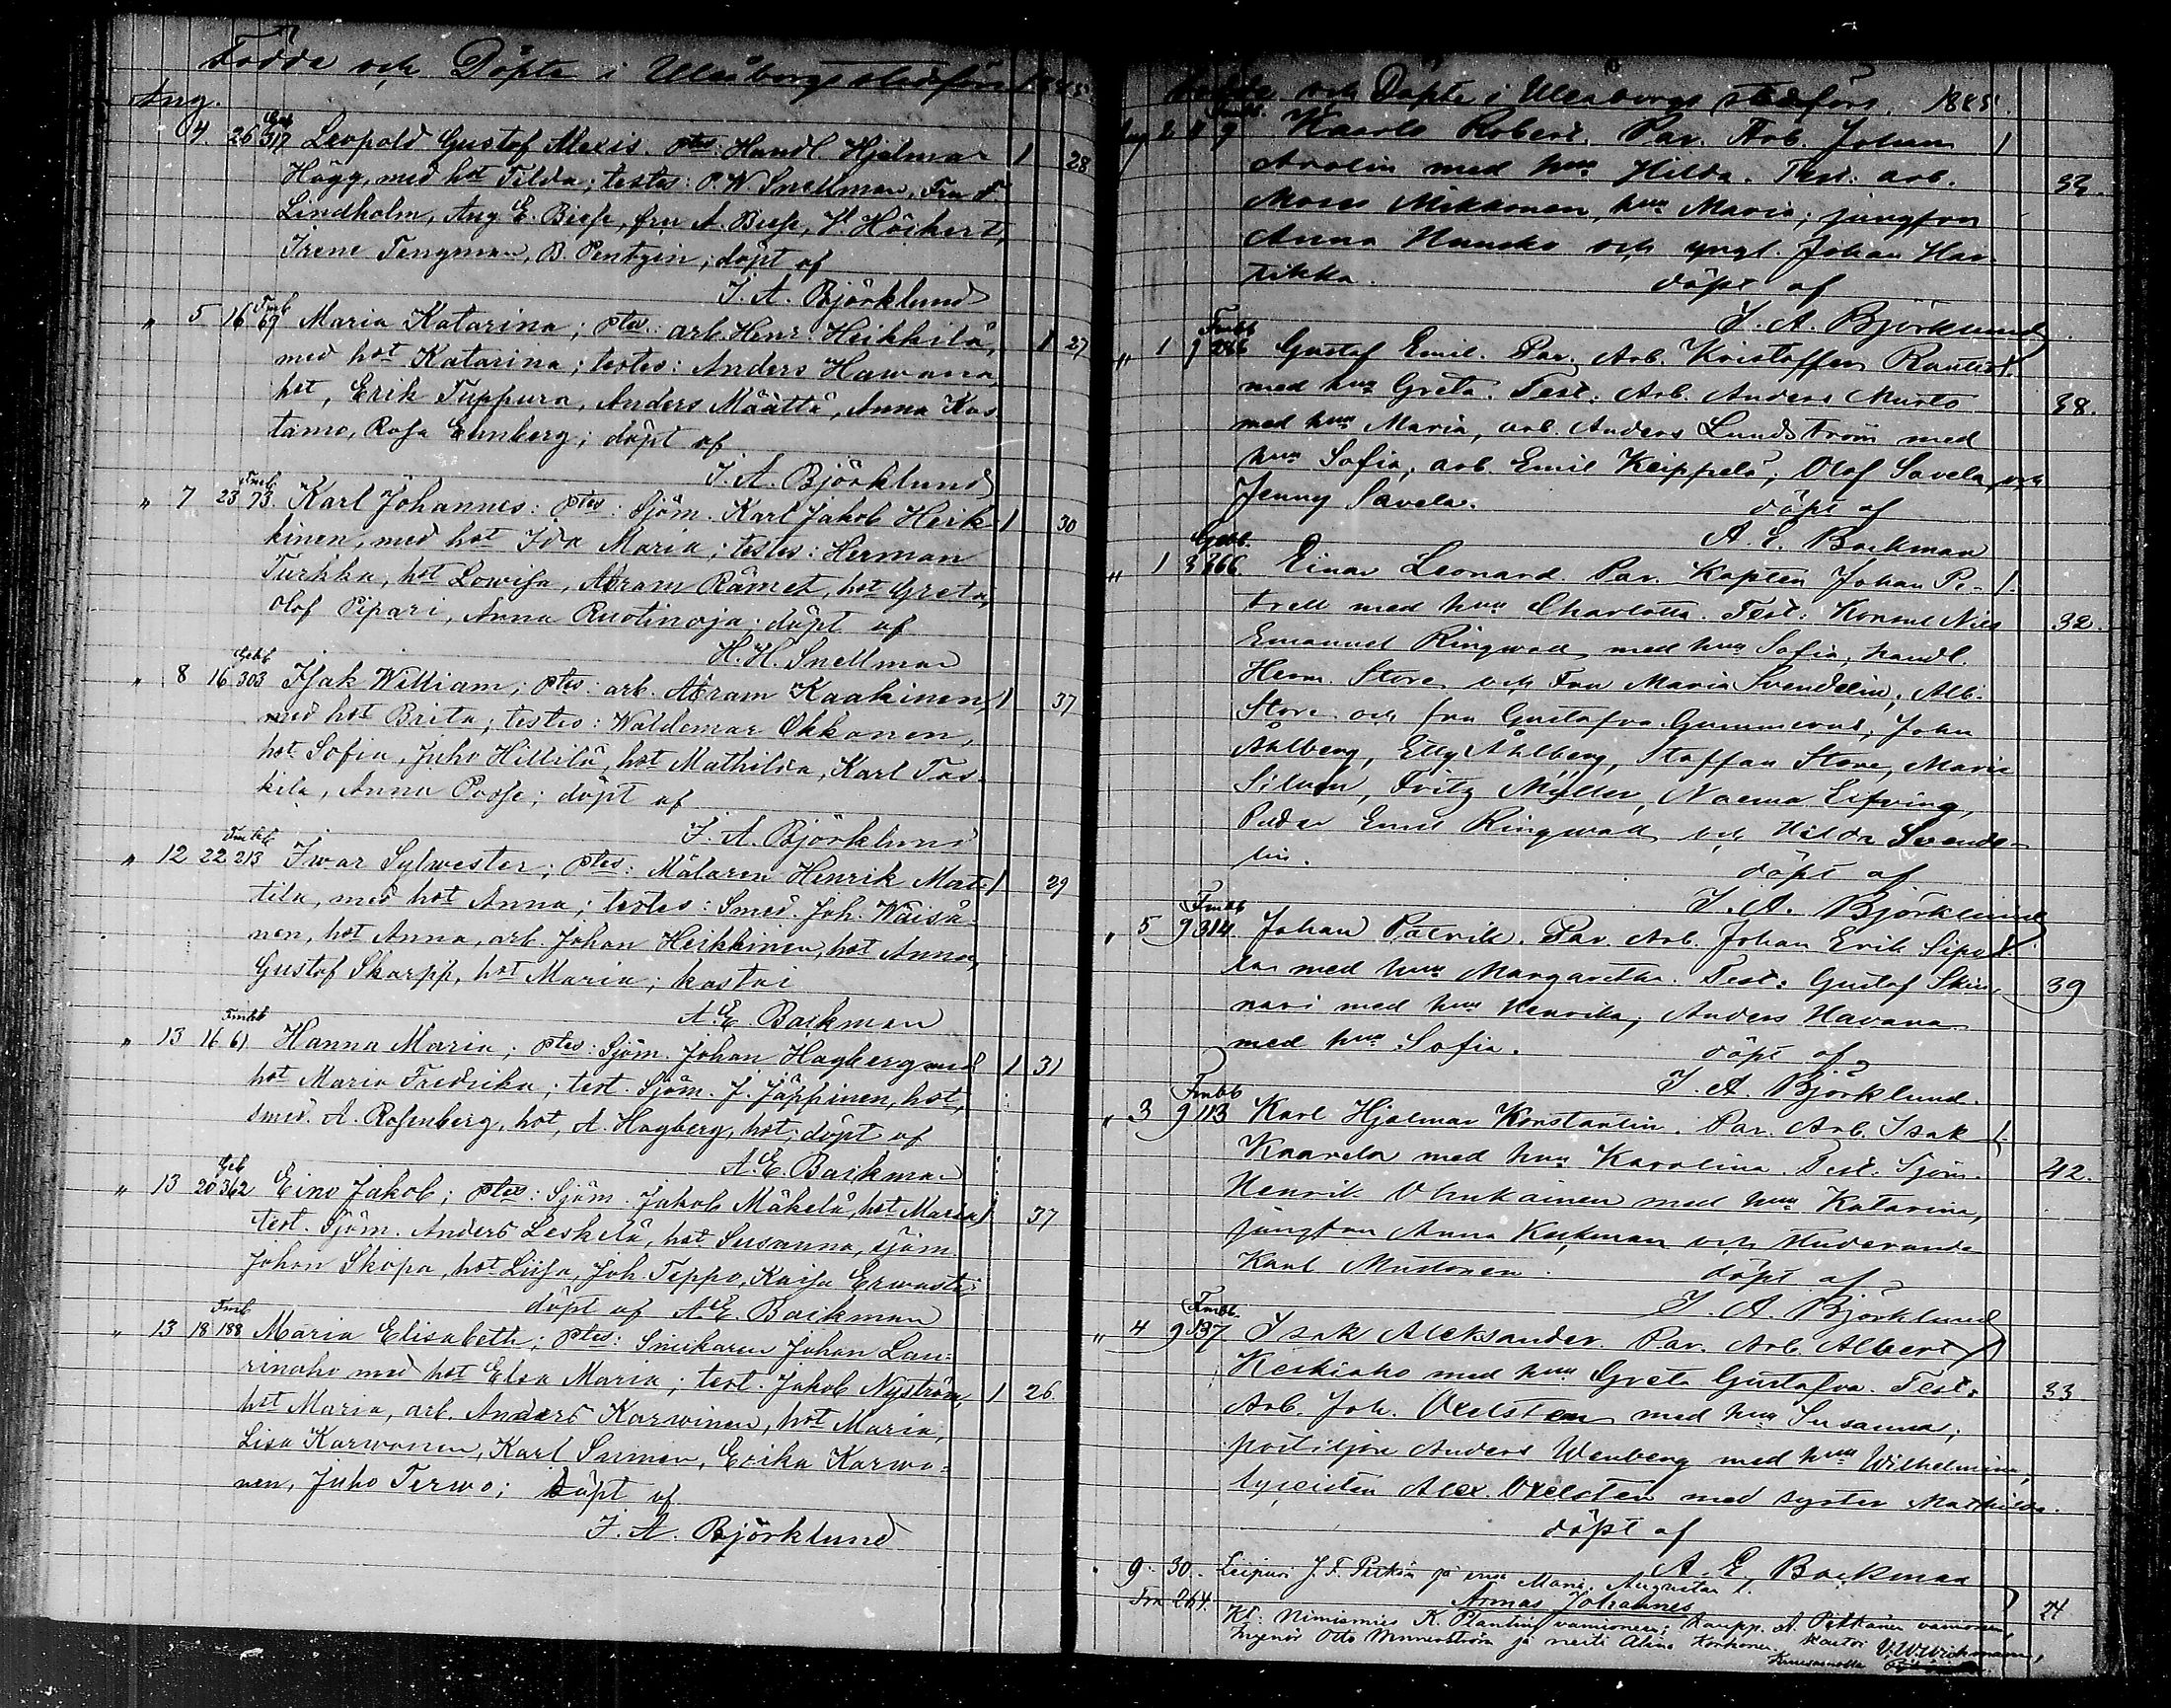 Födda och Döpta i Uleåborgs stadsförs. 1885
Aug.
Geb
4. 26 317 Leopold Gustof Alexis. ptes: Handl. Hjelmar 1 28
Högg, med hot Tilda; testes: P. W. Snellman, Fru F.
Lindholm, Aug E. Biese, fru A. Biese, V. Höckert,
Irene Tengman, B. Pentzin; döpt af
J. A. Björklund
Fmb
„ 5 16 69 Maria Katarina; ptes: arb. Henr. Heikkilä, 1 27
med hot Katarina; testes: Anders Hawana
hot, Erik Tuppura, Anders Määttä, Anna Kos-
tamo, Rosa Ennberg; döpt af
J. A. Björklund
Fmb
„ 7 23 73. Karl Johannes: ptes: Sjöm. Karl Jakob Heik- 1 30
kinen, med hot Ida Maria; testes: Herman
Turkka, hot Lowisa, Abram Rämet, hot Greta,
Olof Pipari, Anna Ruotinoja; döpt af
H. H. Snellman
Gebb
„ 8 16 303 Isak William; ptes: arb. Abram Kaakinen, 1 37
med hot Brita; testes: Waldemar Okkonen,
hot Sofia, Juho Hillilä, hot Mathilda, Karl Tas-
kila, Anna Posse; döpt af
J. A. Björklund
Fmbb
„ 12 22 213 Iwar Sylwester; ptes: Målaren Henrik Mat- 1 29
tila, med hot Anna; testes: Smed. Joh. Wäisä-
nen, hot Anna, arb. Johan Heikkinen, hot Anna,
Gustof Skarpp, hot Maria; kastoi
A. E. Backman
Fmbb
„ 13 16 61 Hanna Maria; ptes: Sjöm. Johan Hagberg med 1 31
hot Maria Fredrika; test. Sjöm. J. Jäppinen, hot,
smed. A. Rosenberg, hot, A. Hagberg, hot; döpt af
A. E. Backman
Geb
„ 13 20 362 Eino Jakob; ptes: Sjöm. Jakob Mäkelä, hot Maria 1 37
test. Sjöm. Anders Leskelä, hot Susanna, sjöm.
Johan Sköpa, hot Liisa, Joh. Teppo, Kaisa Erwasti;
döpt af A. E. Backman
Fmb
„ 13 18 188 Maria Elisabeth; ptes: Snickaren Johan Lau-
rinaho med hot Elsa Maria; test. Jakob Nyström, 1 26.
hot Maria, arb. Anders Karwinen, hot Maria,
Lisa Karwonen, Karl Snimen, Erika Karwo-
nen, Juho Terwo; döpt af
J. A. Björklund
Födde och Döpte i Uleåborgs stadsförs. 1885.
Fmbb.
Aug 2 8 9 Kaarlo Robert. Par. Arb. Johan 1
Avolin med hua Hilda. Test: arb. 33.
Moses Mikkonen, hua Maria; jungfrun
Anna Hanska och yngl. Johan Har-
tikka. döpt af
J. A. Björklund.
Fmbb
„ 1 9 286 Gustaf Emil. Par. Arb. Kristoffer Rautio 1.
med hua Greta. Test. Arb. Anders Murto 38.
med hua Maria, arb. Anders Lundström med
hua Sofia, arb. Emil Keippelä, Olof Savela, och
Jenny Savela. döpt af
A. E. Backman
Gebb.
„ 1 3 366 Einar Leonard. Par. Kapten Johan Pe- 1.
trell med hua Charlotta. Test: Konsul Nils 32.
Emanuel Ringwall med hua Sofia, handl.
Herm. Store och Fru Maria Svendelin; Alb.
Store och fru Gustafva Gummerus, John
Åhlberg, Elly Åhlberg, Staffan Store, Maria
Silven, Fritz Müller, Naema Elfving,
Peder Emil Ringwall och Hilda Svende-
lin. döpt af
J. A. Björklund
Fmbb
„ 5 9 314 Johan Patrik. Par. Arb. Johan Erik Sipo- 1.
la med hua Margaretha. Test: Gustaf Skin- 39
nari med hua Henrika, Anders Havana
med hua Sofia. döpt af
J. A. Björklund.
Fmbb
„ 3 9 113 Karl Hjalmar Konstantin. Par. Arb. Isak 1.
Kaarela med hua Karolina. Test. Sjöm. 42.
Henrik Ohukainen med hua Katarina,
jungfrun Anna Keckman och studerande
Karl Mustonen. döpt af
J. A. Björklund
Fmbb.
„ 4 9 137 Isak Aleksander. Par. Arb. Albert 1
Keskiaho med hua Greta Gustafva. Test: 33
Arb. Joh. Oxelsten med hua Susanna;
postiljon Anders Wenberg med hua Wilhelmina,
Alex. Oxelsten med syster Mathilda.
döpt af
A. E. Backman
„ 9. 30. Leipuri J. F. Pitkän ja vmo Maria Augustan l.
Fm 264. Armas Johannes 1 24
Kt: Nimismies K. Planting vaimoneen; Kaupp. A. Pitkänen vaimoneen,
Ingeniör Otto ja neiti Alina Korhonen. Kastoi V. W. Wichmann,